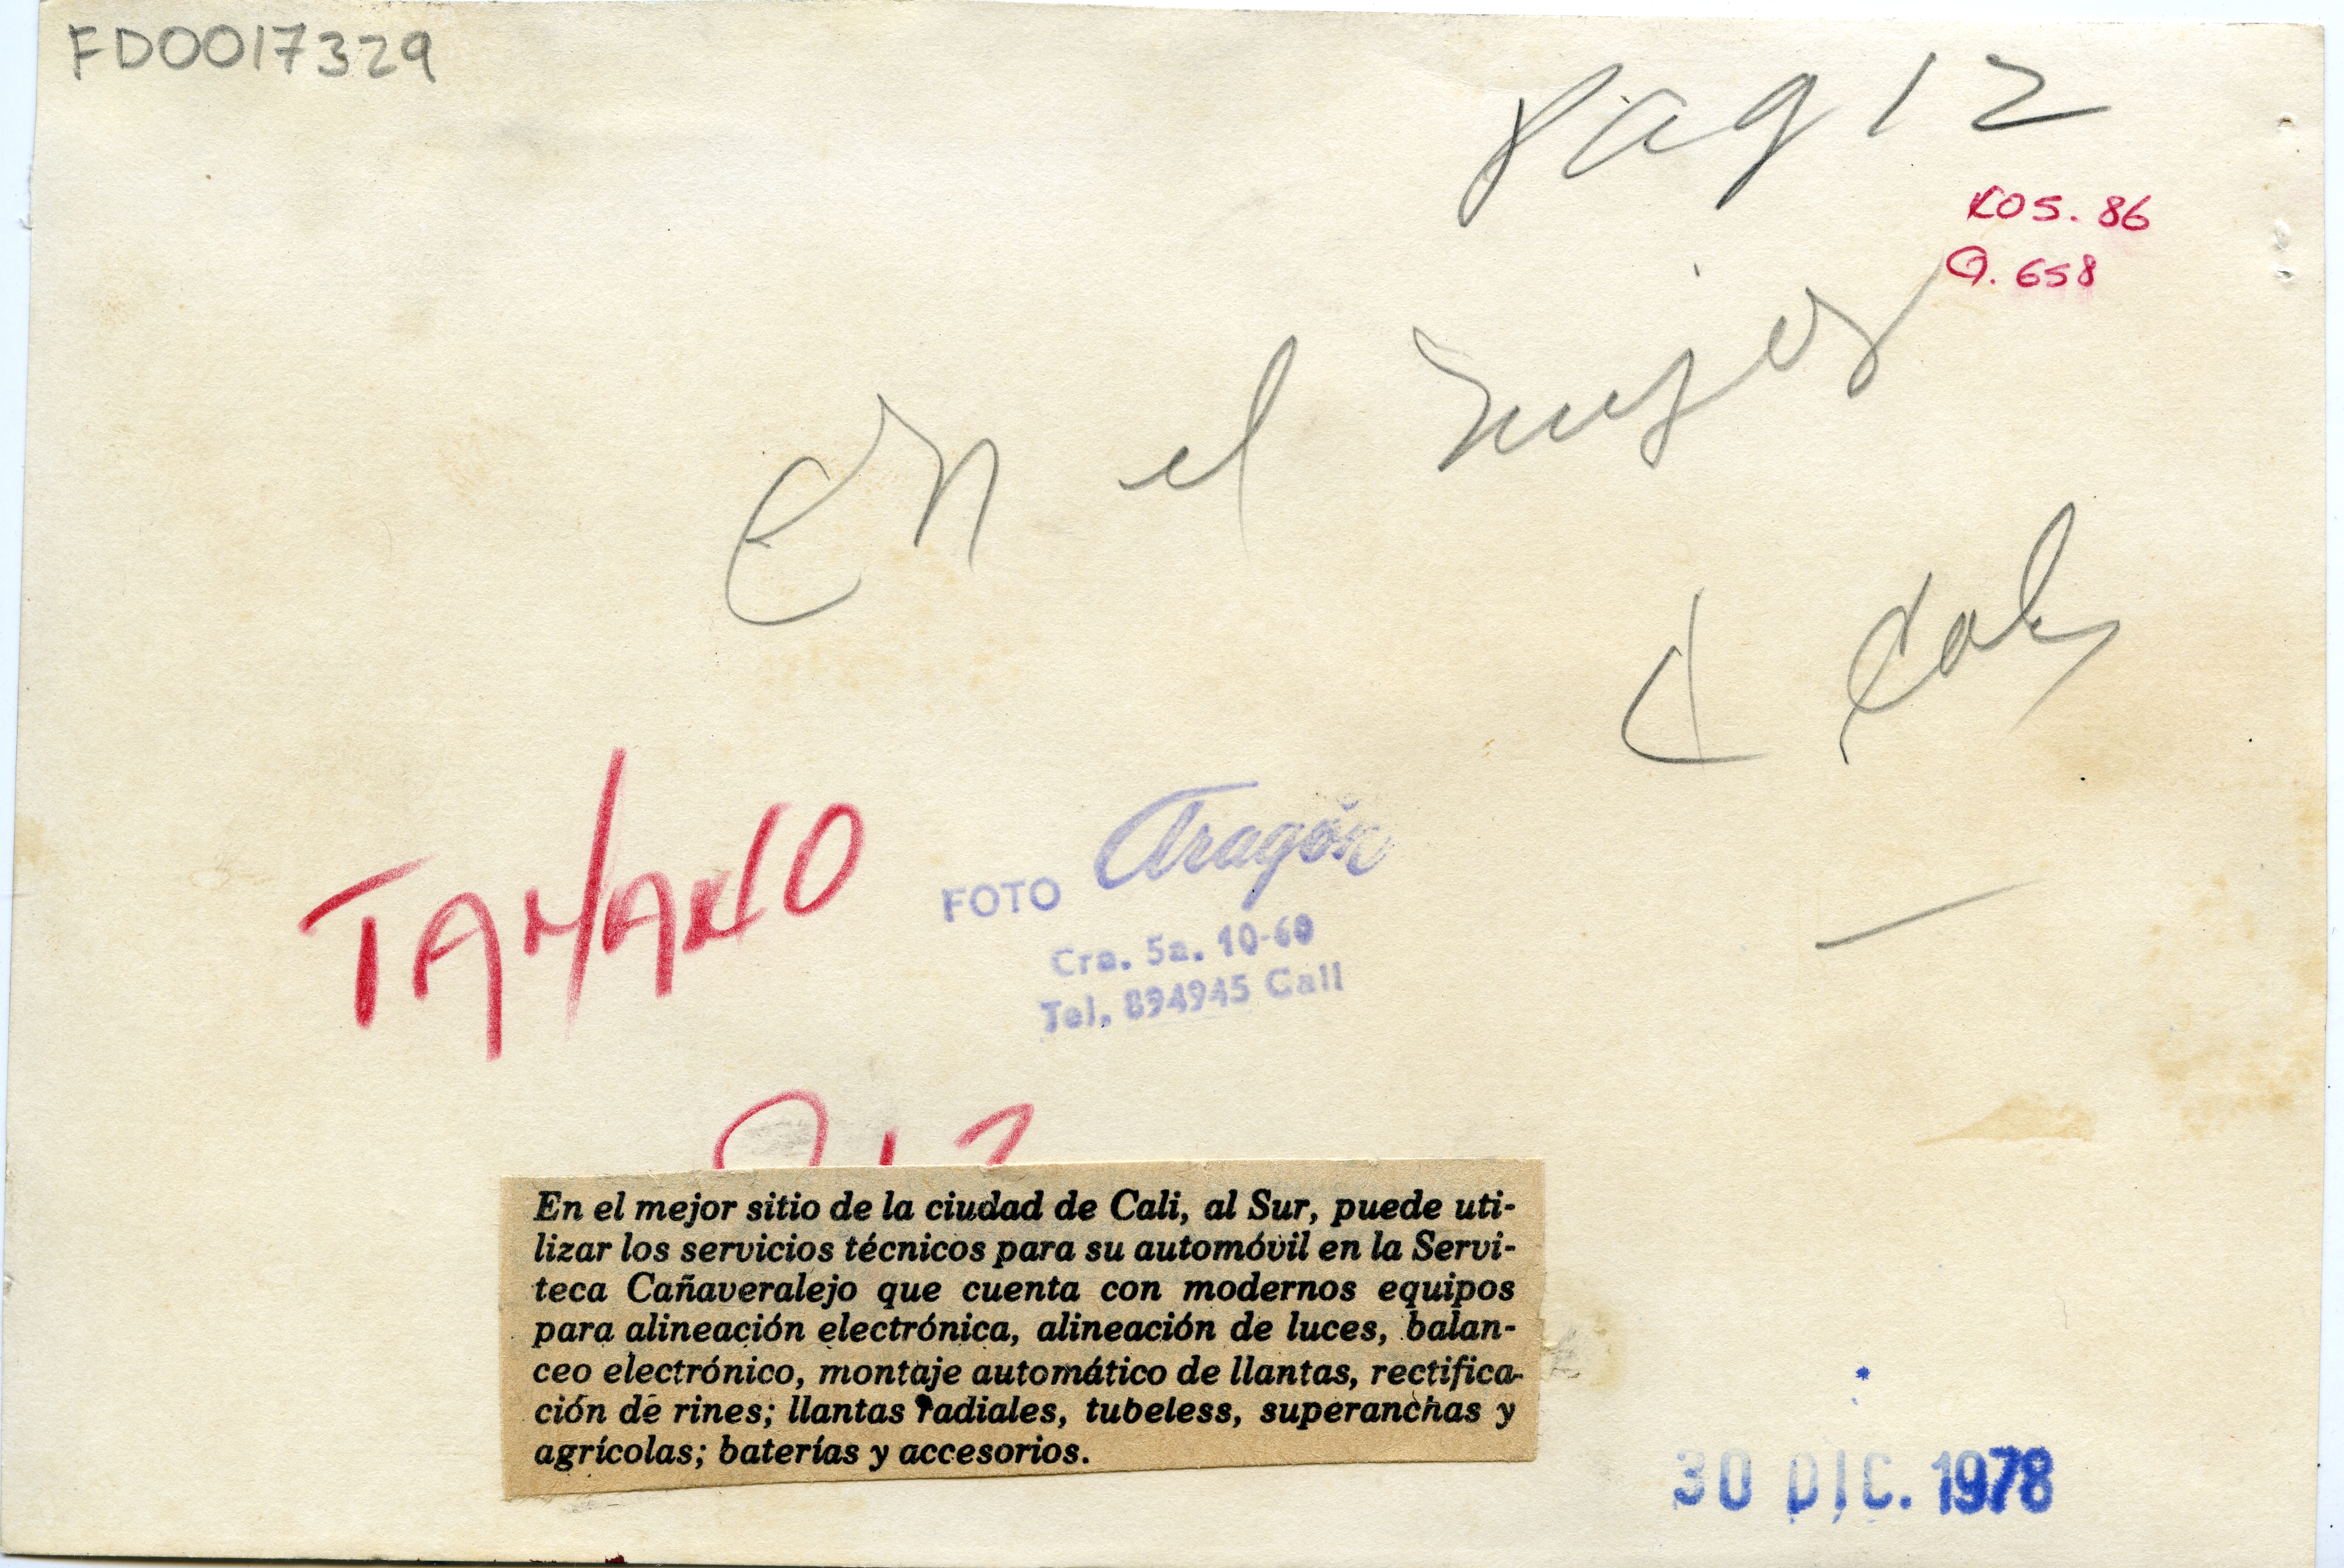 FD0017329
Pag 12
ROS. 86
Q. 658
En el mejor
d Cali
TAMAÑO
FOTO Aragón
Cra. 5a. 10-60
Tel. 894945 Cali
En el mejor sitio de la ciudad de Cali, al Sur, puede uti-
lizar los servicios técnicos para su automóvil en la Servi-
teca Cañaveralejo que cuenta con modernos equipos
para alineación electrónica, alineación de luces, balan-
ceo electrónico, montaje automático de llantas, rectifica-
ción de rines; llantas radiales, tubeless, superanchas y
agrícolas; baterías y accesorios.
30 DIC. 1978